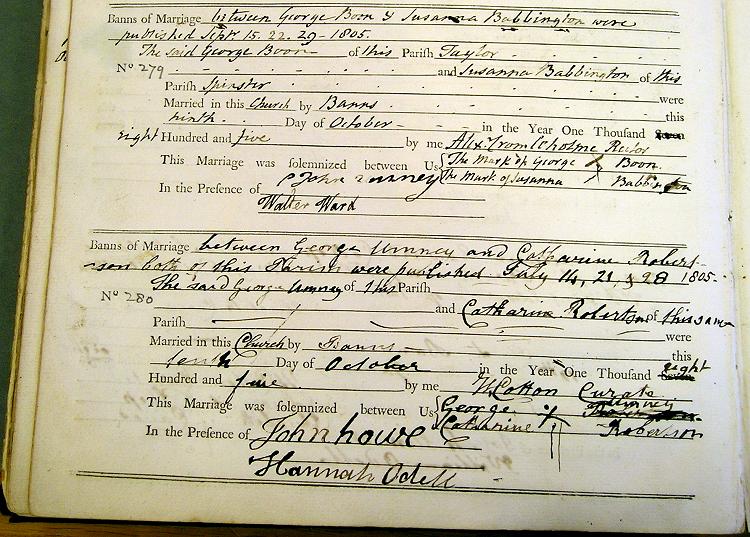 Banns of Marriage between George Boon & Susanna Babbington were
published Sept. 15. 22. 29 - 1805.
The said George Boon of this Parish Taylor
No 279 and Susanna Babbington of this
Parish Spinster were
Married in this Church by Banns this
ninth Day of October in the Year One Thousand
eight Hundred and five by me Rector
This Marriage was solemnized between Us The Mark of George Boon
In the Presence of John Umney The Mark of Susanna Babbington
Walter Ward
Banns of Marriage between George Umney and Catharine Robert-
-son both of this Parish were published July 14, 21, & 28 1805-
The said George Umney of this Parish
No 280 and Catharine Robertson of this same
Parish were
Married in this Church by Banns this
tenth Day of October in the Year One Thousand eight
Hundred and five by me W Cotton Curate
This Marriage was solemnized between Us George Umney
In the Presence of John howe Catharine Robertson
Hannah Odell